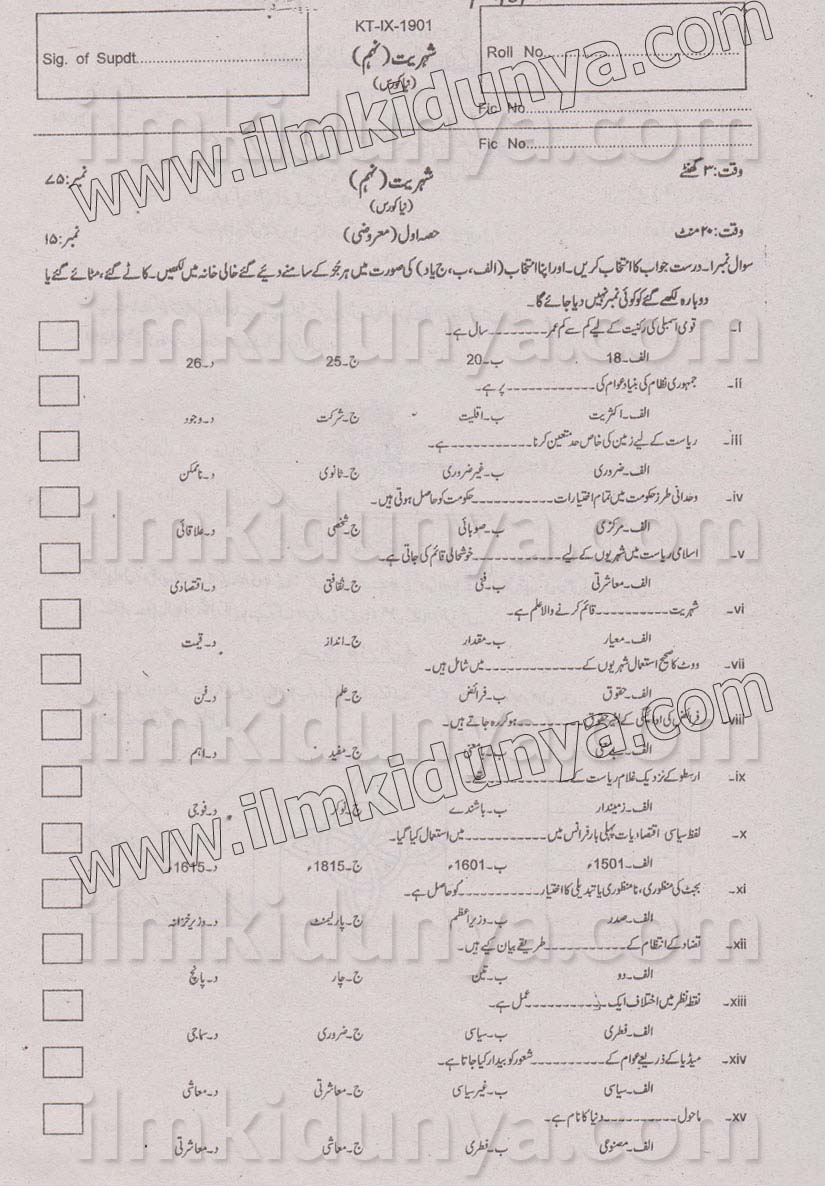 KT-IX-1901
شہریت (نہم)
(نیا کورس)
Sig. of Supdt.
Roll No.
Fic No.
Fic No.
وقت: ۳ گھنٹے
شہریت (نہم)
نمبر: ۷۵
(نیا کورس)
وقت: ۲۰ منٹ
حصہ اول (معروضی)
نمبر: ۱۵
سوال نمبر۱۔ درست جواب کا انتخاب کریں۔ اور اپنا انتخاب (الف، ب، ج یا د) کی صورت میں ہر جُز کے سامنے دیئے گئے خالی خانہ میں لکھیں۔ کاٹے گئے، مٹائے گئے یا
دوبارہ لکھے گئے کو کوئی نمبر نہیں دیا جائے گا۔
i۔ قومی اسمبلی کی رکنیت کے لیے کم سے کم عمر ـــــــــ سال ہے۔
الف۔ 18 ب۔ 20 ج۔ 25 د۔ 26
ii۔ جمہوری نظام کی بنیاد عوام کی ـــــــــ پر ہے۔
الف۔ اکثریت ب۔ اقلیت ج۔ شرکت د۔ وجود
iii۔ ریاست کے لیے زمین کی خاص حد متعین کرنا ـــــــــ ہے۔
الف۔ ضروری ب۔ غیر ضروری ج۔ ثانوی د۔ ناممکن
iv۔ وحدانی طرز حکومت میں تمام اختیارات ـــــــــ حکومت کو حاصل ہوتی ہیں۔
الف۔ مرکزی ب۔ صوبائی ج۔ شخصی د۔ علاقائی
v۔ اسلامی ریاست میں شہریوں کے لیے ـــــــــ خوشحالی قائم کی جاتی ہے۔
الف۔ معاشرتی ب۔ فنی ج۔ ثقافتی د۔ اقتصادی
vi۔ شہریت ـــــــــ قائم کرنے والا علم ہے۔
الف۔ معیار ب۔ مقدار ج۔ انداز د۔ قیمت
vii۔ ووٹ کا صحیح استعمال شہریوں کے ـــــــــ میں شامل ہیں۔
الف۔ حقوق ب۔ فرائض ج۔ علم د۔ فن
viii۔ فرائض کی ادائیگی کے بغیر حقوق ـــــــــ ہو کر رہ جاتے ہیں۔
الف۔ ب۔ بامعنی ج۔ مفید د۔ اہم
ix۔ ارسطو کے نزدیک غلام ریاست کے ـــــــــ
الف۔ زمیندار ب۔ باشندے ج۔ نوکر د۔ فوجی
x۔ لفظ سیاسی اقتصادیات پہلی بار فرانس میں ـــــــــ میں استعمال کیا گیا۔
الف۔ 1501ء ب۔ 1601ء ج۔ 1815ء د۔ 1615ء
xi۔ بجٹ کی منظوری، نامنظوری یا تبدیلی کا اختیار ـــــــــ کو حاصل ہے۔
الف۔ صدر ب۔ وزیراعظم ج۔ پارلیمنٹ د۔ وزیر خزانہ
xii۔ تضاد کے انتظام کے ـــــــــ طریقے بیان کیے ہیں۔
الف۔ دو ب۔ تین ج۔ چار د۔ پانچ
xiii۔ نقطہ نظر میں اختلاف ایک ـــــــــ عمل ہے۔
الف۔ فطری ب۔ سیاسی ج۔ ضروری د۔ سماجی
xiv۔ میڈیا کے ذریعے عوام کے ـــــــــ شعور کو بیدار کیا جاتا ہے۔
الف۔ سیاسی ب۔ غیر سیاسی ج۔ معاشرتی د۔ معاشی
xv۔ ماحول ـــــــــ دنیا کا نام ہے۔
الف۔ مصنوعی ب۔ فطری ج۔ معاشی د۔ معاشرتی
www.ilmkidunya.com
www.ilmkidunya.com
ilmkidunya.com
ilmkidunya.com
ilmkidunya.com
ilmkidunya.com
ilmkidunya.com
ilmkidunya.com